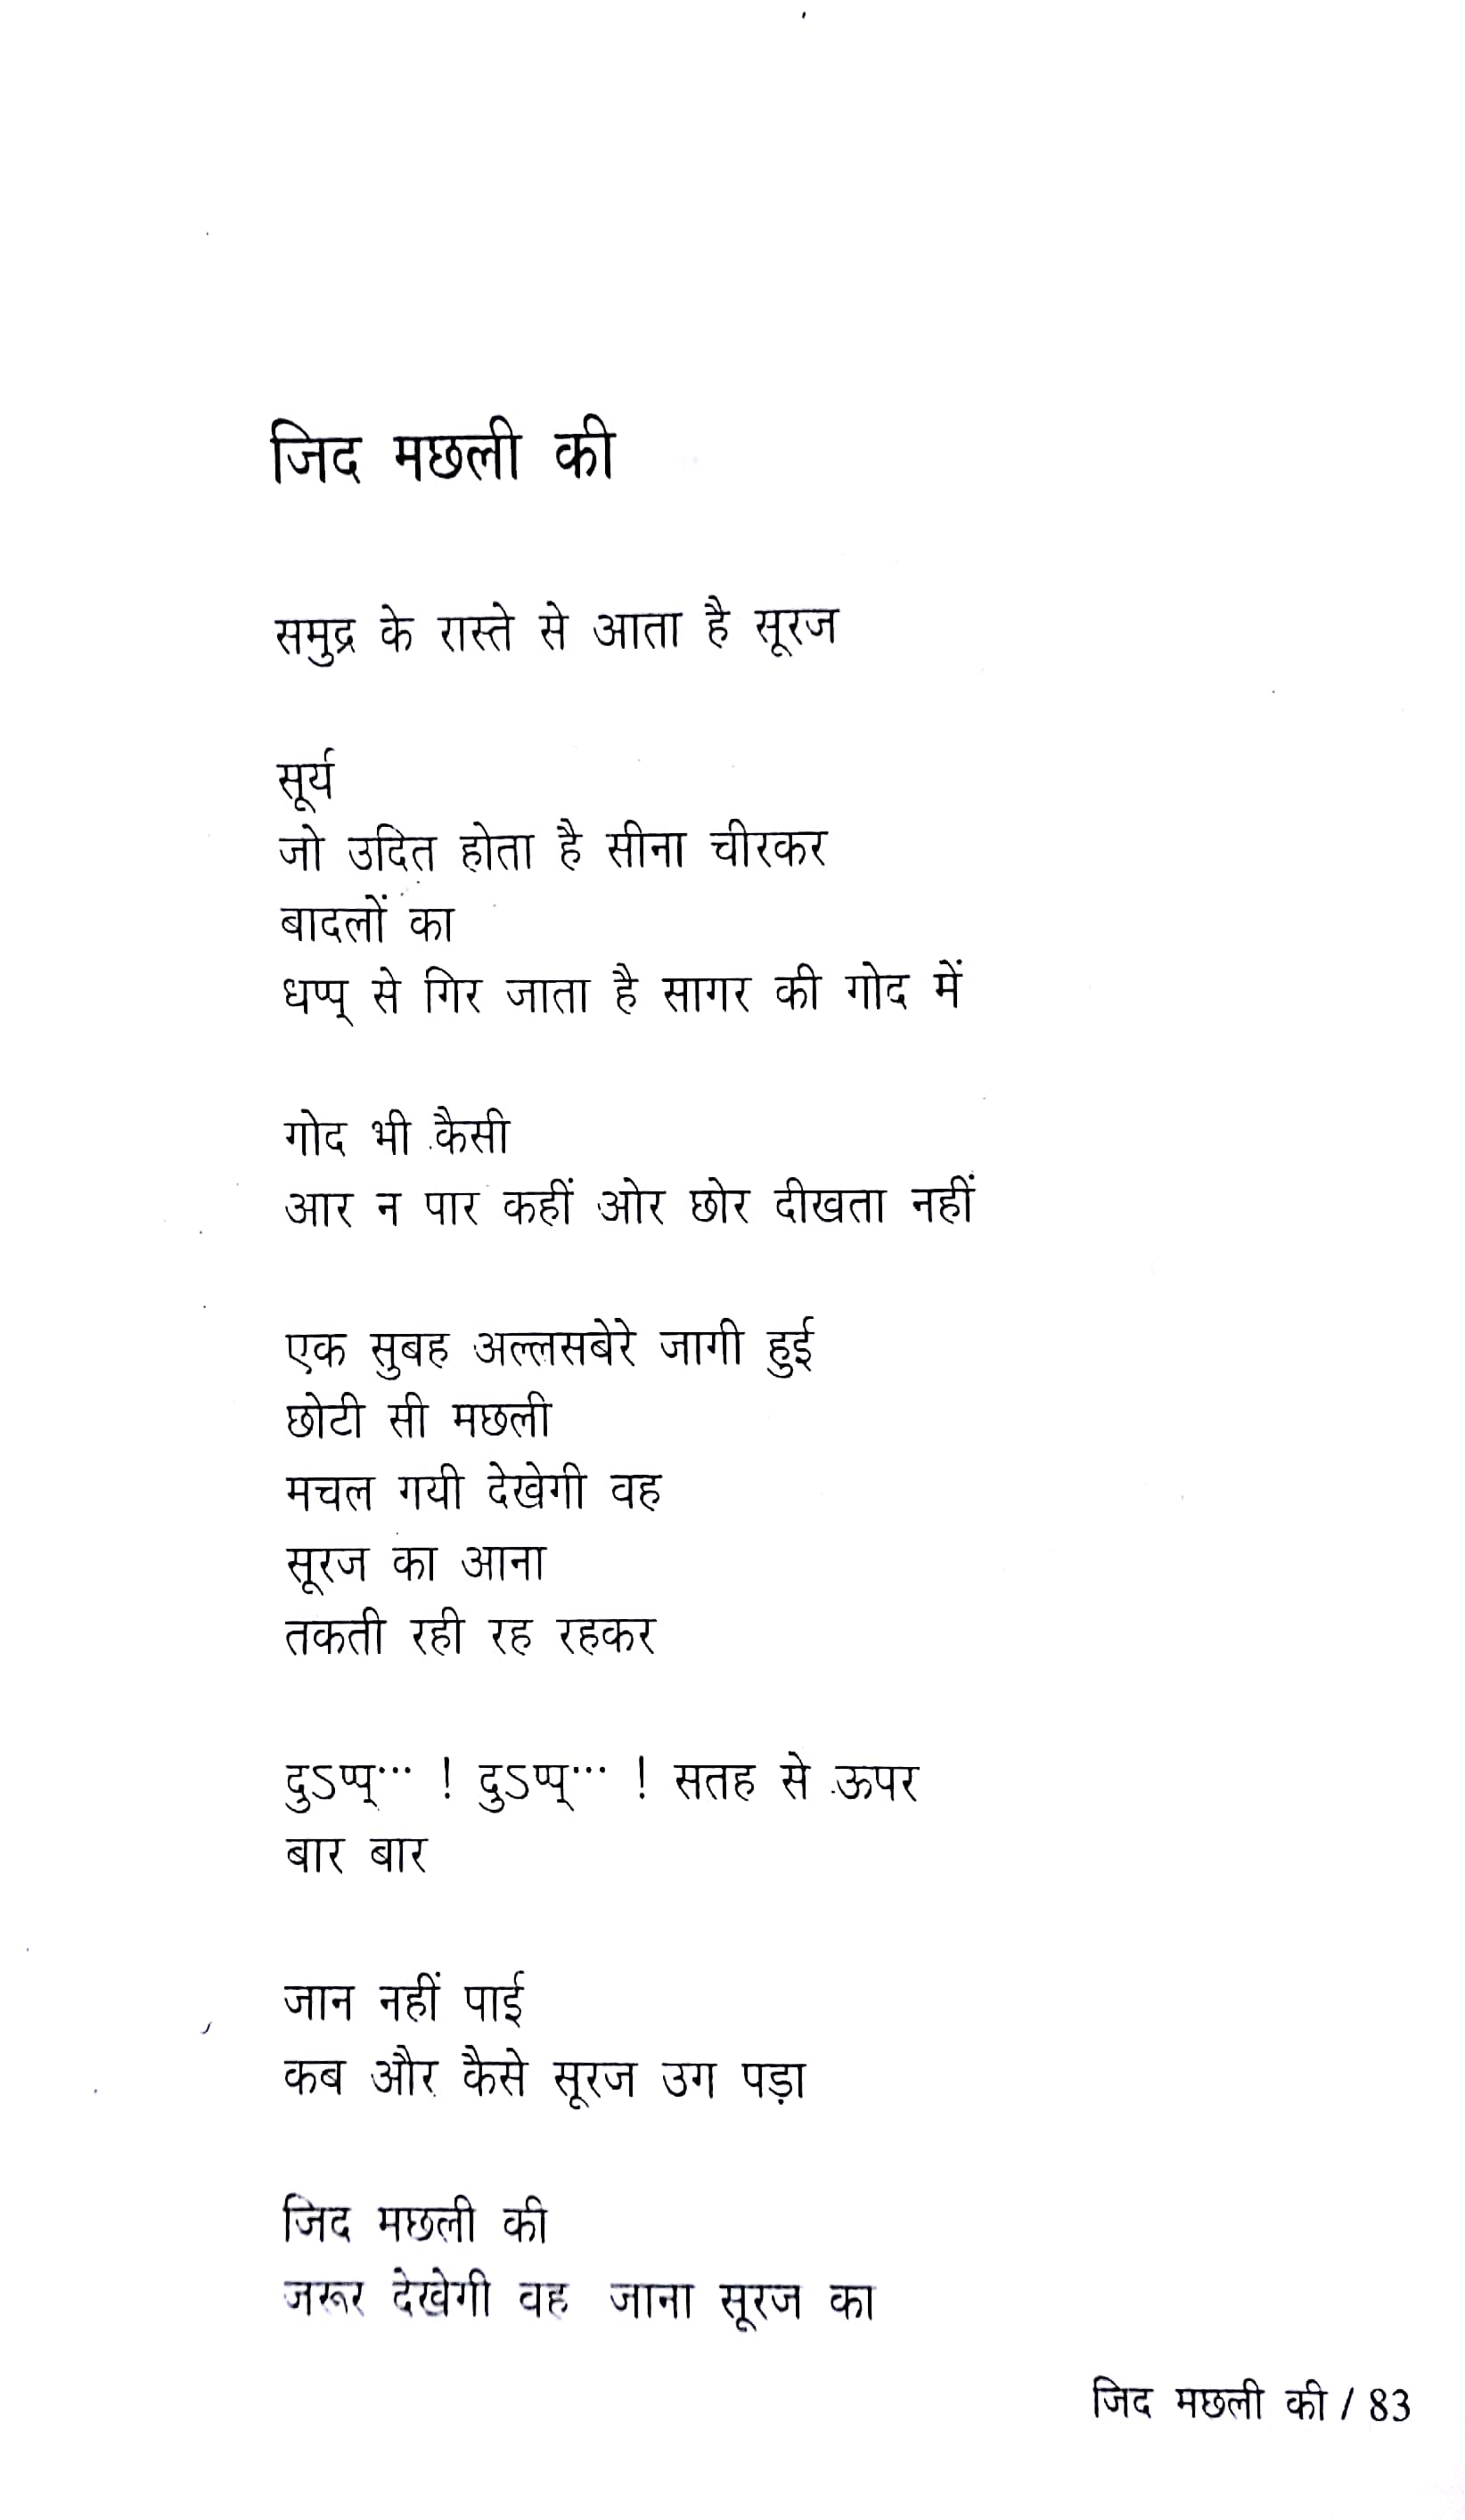 जिद मछली की
समुद्र के रास्ते से आता है सूरज
सूर्य
जो उदित होता है सीना चीरकर
बादलों का
धप्प् से गिर जाता है सागर की गोद में
गोद भी कैसी
आर न पार कहीं ओर छोर दीखता नहीं
एक सुबह अल्लसबेरे जागी हुई
छोटी सी मछली
मचल गयी देखेगी वह
सूरज का आना
तकती रही रह रहकर
दुऽप्प्··· ! दुऽप्प्··· ! सतह से ऊपर
बार बार
जान नहीं पाई
कब और कैसे सूरज उग पड़ा
जिद मछली की
जरूर देखेगी वह जाना सूरज का
जिद मछली की / 83